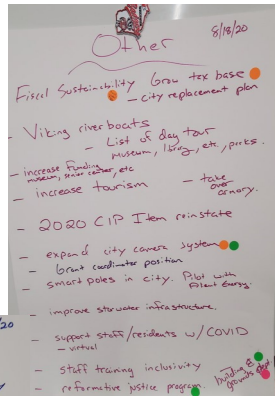 Other
8/18/20
Fiscal Sustainability Grow tax base
- City replacement plan
- Viking riverboats
- List of day tour
museum, library, etc, parks.
- increase funding
museum, senior center, etc
- increase tourism
- take over armory.
- 2020 CIP Item reinstate
- expand city camera system
- Grant coordinator position
- smart poles in city. Pilot with Alliant Energy.
- improve storwater infrastructure.
/20
- support staff/residents w/ COVID
- virtual
- staff training inclusivity
- reformative justice program
building & grounds dept